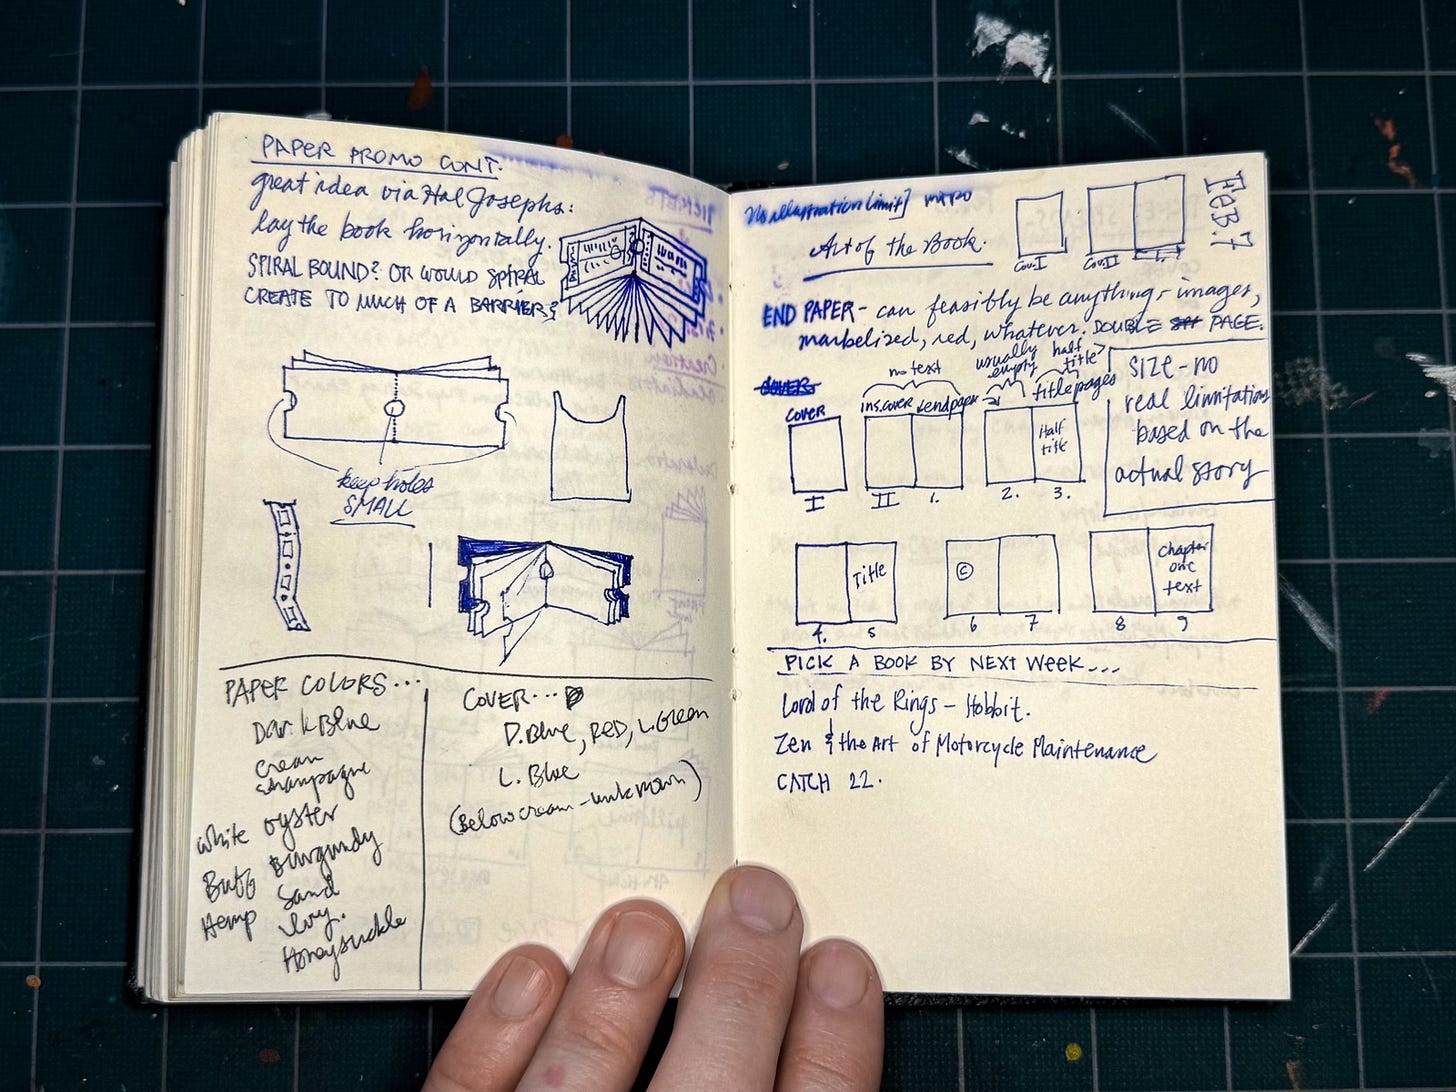 PAPER PROMO CONT.
great idea via Hal Josephs:
lay the book horizontally.
SPIRAL BOUND? OR WOULD SPIRAL
CREATE TO MUCH OF A BARRIER?
keep holes
SMALL
PAPER COLORS...
Dark Blue
cream
champagne
white oyster
Buff Burgundy
Hemp Sand
Ivy.
Honeysuckle
COVER...
D.Blue, RED, L.Green
L. Blue
(Below cream - unknown)
FEB. 7
No illustration limit]
Art of the Book.
Cov. I
Cov. II
1.
END PAPER - can feasibly be anything - images,
marbelized, red, whatever. DOUBLE PAGE.
COVER
no text
usually
empty
half
title
ins.cover & endpaper
title pages
COVER
Half
title
I
II
1.
2.
3.
SIZE - no
real limitations
based on the
actual story
Title
4.
5
©
6
7
chapter
one
text
8
9
PICK A BOOK BY NEXT WEEK...
Lord of the Rings - Hobbit.
Zen & the Art of Motorcycle Maintenance
CATCH 22.